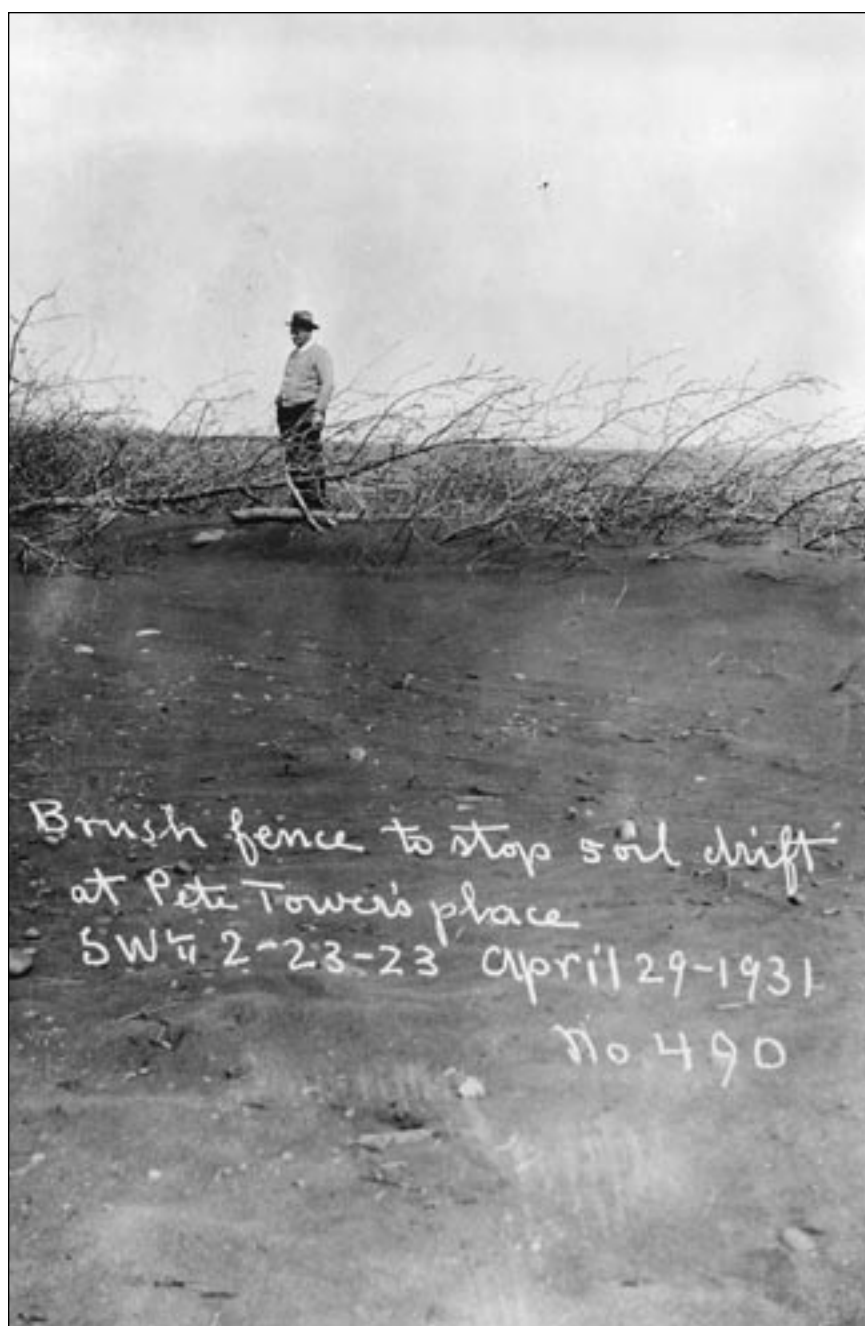 Brush fence to stop soil drift
at Pete Tower's place
SW 2-23-23 April 29-1931
No 490